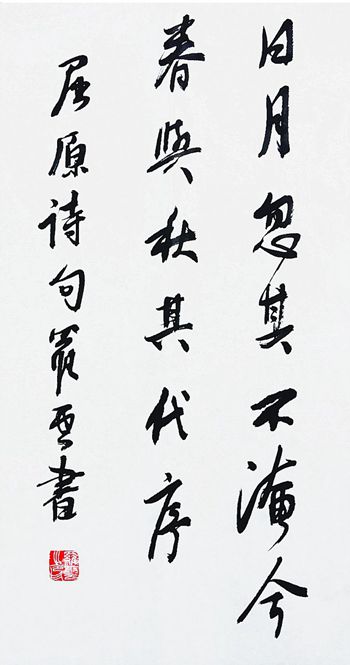 日月忽其不淹兮
春與秋其代序
屈原诗句書